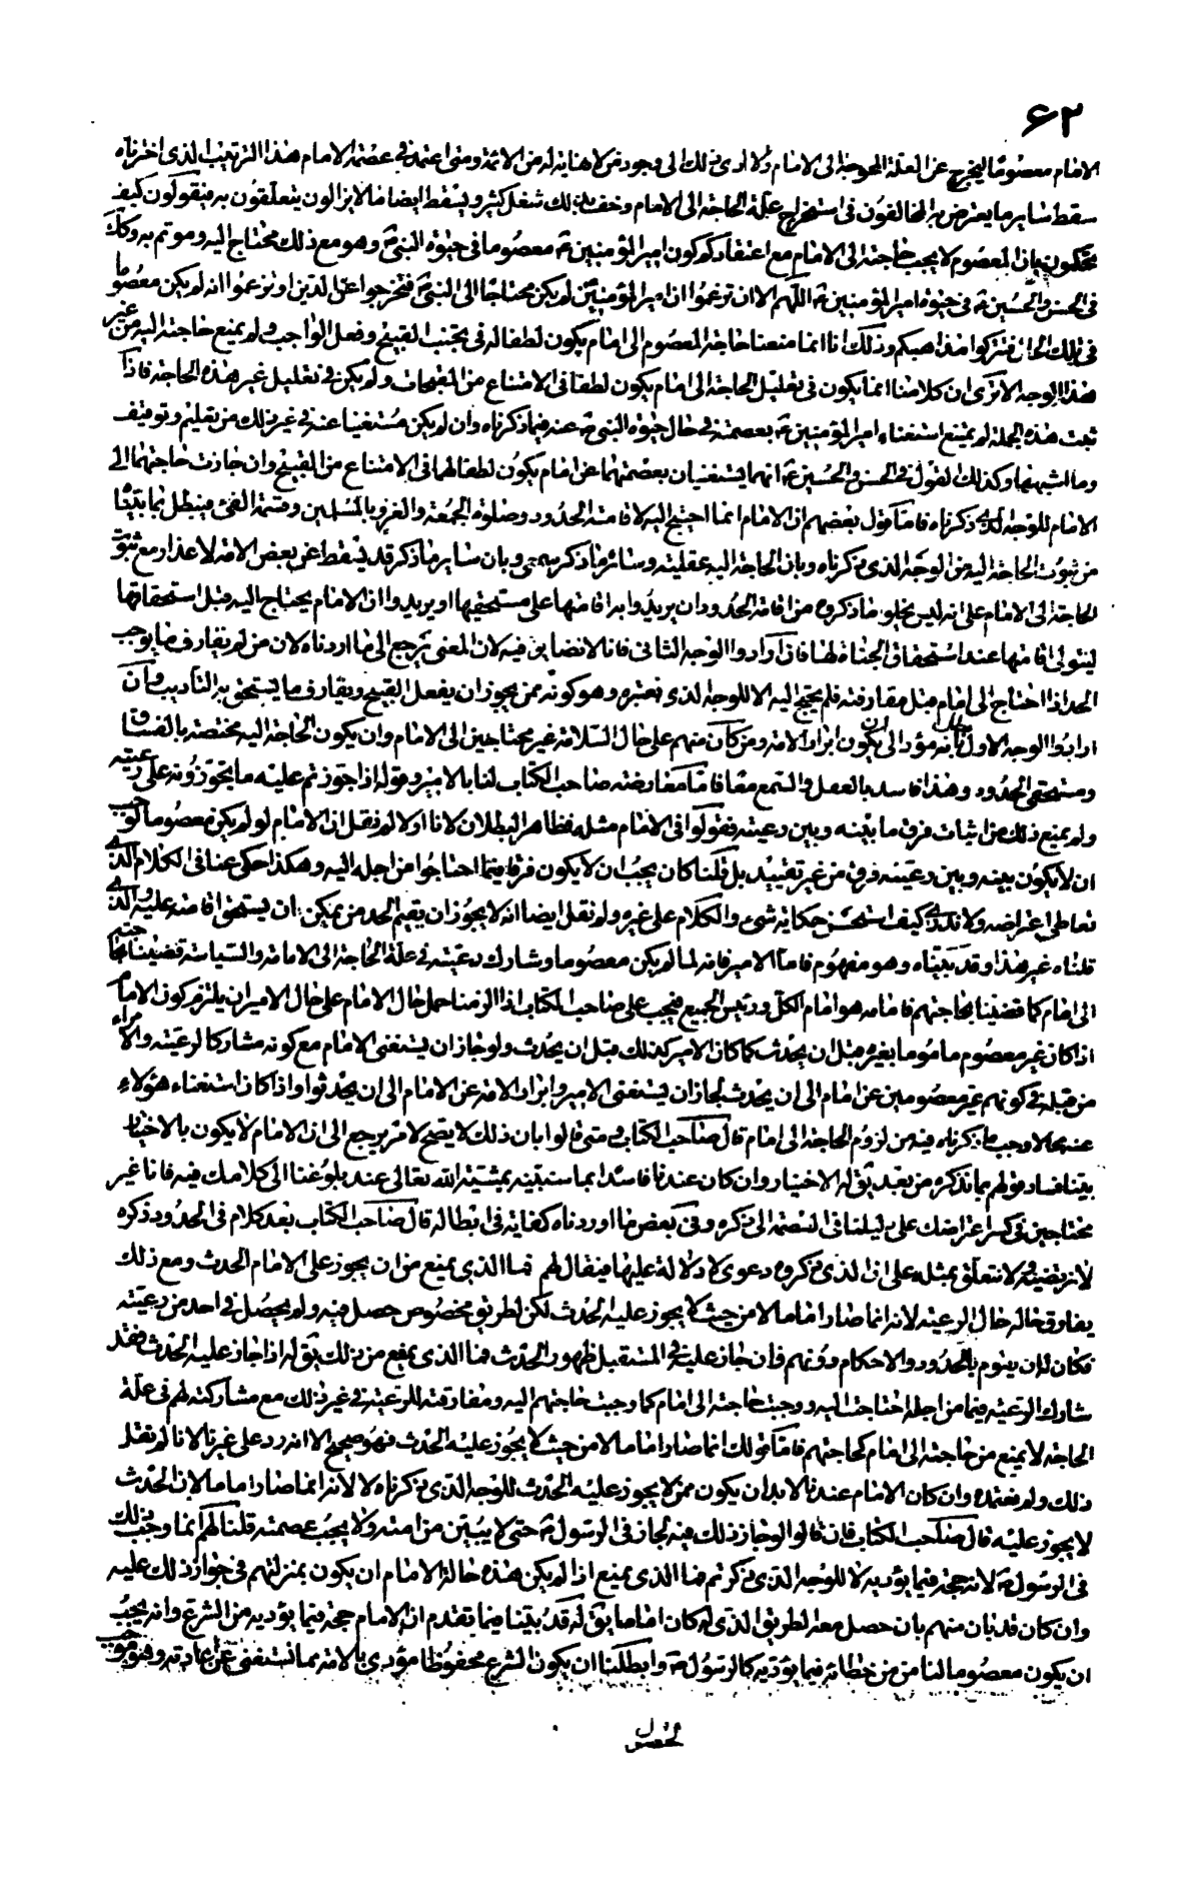 ۶۲
الامام معصوما ليخرج عن العلة المحوجة الى الامام ولادى ذلك الى وجود من لا نهاية له من الائمة ومتى اعتمد فى عصمة الامام هذا الترتيب الذى اخترناه
سقط ساير ما يعترض به المخالفون فى استخراج علة الحاجة الى الامام وخف بذلك شغل كثير ويسقط ايضا ما لا يزالون يتعلقون به فيقولون كيف
تحكمون بان المعصوم لا يجب حاجته الى الامام مع اعتقادكم كون امير المؤمنين ع معصوما فى حيوة النبى ص وهو مع ذلك محتاج اليه وموتم به وكك
فى الحسن والحسين ع فى حيوة امير المؤمنين ع اللهم الا ان تزعموا ان امير المؤمنين لم يكن محتاجا الى النبى ص فتخرجوا عن الدين او تزعموا انه لم يكن معصوما
فى تلك الحال فتتركوا مذاهبكم وذلك انا انما منعنا حاجة المعصوم الى امام يكون لطفا له فى تجنب القبيح وفعل الواجب ولم يمنع حاجته اليه من غير
هذا الوجه الا ترى ان كلامنا انما يكون فى تعليل الحاجة الى امام يكون لطفا فى الامتناع من المقبحات ولم يكن فى تعليل غير هذه الحاجة فاذا
ثبت هذه الجملة لم يمتنع استغناء امير المؤمنين ع بعصمته فى حال حيوة النبى ص عنه فيما ذكرناه وان لم يكن مستغنيا عنه فى غير ذلك من تعليم وتوقيف
وما اشبههما وكذلك القول فى الحسن والحسين ع انهما يستغنيان بعصمتهما عن امام يكون لطفا لهما فى الامتناع من القبيح وان جازت حاجتهما الى
الامام للوجه الذى ذكرناه فاما قول بعضهم ان الامام انما احتيج اليه لاقامة الحدود وصلوة الجمعة والغزو بالمسلمين وقسمة الفئ فيبطل بما بيناه
من ثبوت الحاجة اليه من الوجه الذى ذكرناه وبان الحاجة اليه عقلية وسائر ما ذكر سمعى وبان ساير ما ذكر قد يسقط عن بعض الامة لاعذار مع ثبوت
الحاجة الى الامام على انه ليس يخلو ما ذكروه من اقامة الحدود ان يريدوا به اقامتها على مستحقيها او يريدوا ان الامام يحتاج اليه قبل استحقاقها
ليتولى اقامتها عند استحقاق الجناة لها فان ارادوا الوجه الثانى فانا لا نضايق فيه لان المعنى يرجع الى ما اردناه لان من لم يقارف ما يوجب
الحد اذا احتاج الى امام قبل مقارفته فلم يحتج اليه الا للوجه الذى نعتبره وهو كونه ممن يجوز ان يفعل القبيح ويقارف ما يستحق به التأديب وان
ارادوا الوجه الاول فانه مؤد الى ان يكون ابرار الامة ومن كان منهم على حال السلامة غير محتاجين الى الامام وان يكون الحاجة اليه مختصة بالفساق
ومستحقى الحدود وهذا فاسد بالعقل والسمع معا فاما معارضة صاحب الكتاب لنا بالامير وقوله اذا جوزتم عليه ما يجوزونه على رعيته
ولم يمنع ذلك من اثبات فرق ما بينه وبين رعيته فقولوا فى الامام مثله فظاهر البطلان لانا اولا لم نقل ان الامام لو لم يكن معصوما لوجب
ان لا يكون بينه وبين رعيته فرق من غير تقييد بل قلنا كان يجب ان لا يكون فرقا فيما احتاجوا من اجله اليه وهكذا حكى عنا فى الكلام الذى
تعاطى اعتراضه ولا ندرى كيف استحسن حكاية شىء والكلام على غيره ولم نقل ايضا انه لا يجوز ان يقيم الحد من يمكن ان يستحق اقامته عليه والذى
قلناه غير هذا وقد بيناه وهو مفهوم فاما الامير فانه لما لم يكن معصوما وشارك رعيته فى علة الحاجة الى الامامة والسياسة قضينا بحاجته
الى امام كما قضينا بحاجتهم فامامه هو امام الكل ورئيس الجميع فيجب على صاحب الكتاب اذا الزمنا حمل حال الامام على حال الامير ان يلتزم كون الامام
اذا كان غير معصوم ماموما بغيره قبل ان يحدث كما كان الامير كذلك قبل ان يحدث ولو جاز ان يستغنى الامام مع كونه مشاركا لرعيته والامراء
من قبله فى كونهم غير معصومين عن امام الى ان يحدث لجاز ان يستغنى الامير وابرار الامة عن الامام الى ان يحدثوا واذا كان استغناء هؤلاء
عنه محالا وجب ما ذكرناه فيه من لزوم الحاجة الى امام قال صاحب الكتاب ومتى قالوا بان ذلك لا يصح لامر يرجع الى ان الامام لا يكون بالاختيار
بينا فساد قولهم بما نذكره من بعد يق له الاختيار وان كان عندنا فاسدا بما سنبينه بمشية الله تعالى عند بلوغنا الى كلامك فيه فانا غير
محتاجين فى كسر اعتراضك على دليلنا فى العصمة الى ذكره وفى بعض ما اوردناه كفاية فى ابطاله قال صاحب الكتاب بعد كلام فى الحدود ذكره
لا نرتضيه ولا نتعلق بمثله على ان الذى ذكروه دعوى لا دلالة عليها فيقال لهم فما الذى يمنع من ان يجوز على الامام الحدث ومع ذلك
يفارق حاله حال الرعية لانه انما صار اماما لا من حيث لا يجوز عليه الحدث لكن لطريق مخصوص حصل فيه ولم يحصل فى احد من رعيته
فكان له ان يقوم بالحدود والاحكام دونهم وان جاز عليه فى المستقبل ظهور الحدث فما الذى يمنع من ذلك يق له اذا جاز عليه الحدث فقد
شارك الرعية فيما من اجله احتاجت اليه ووجبت حاجته الى امام كما وجبت حاجتهم اليه ومفارقته للرعية فى غير ذلك مع مشاركته لهم فى علة
الحاجة لا يمنع من حاجته الى امام كحاجتهم فاما قولك انما صار اماما لا من حيث لا يجوز عليه الحدث فهو صحيح الا انه رد على غيرنا لانا لم نقل
ذلك ولم نعتمده وان كان الامام عندنا لا بد ان يكون ممن لا يجوز عليه الحدث للوجه الذى ذكرناه لا لانه انما صار اماما لان الحدث
لا يجوز عليه قال صاحب الكتاب فان قالوا لو جاز ذلك فيه لجاز فى الرسول ص حتى لا يبين من امته ولا يجب عصمته قلنا لهم انما وجب ذلك
فى الرسول ص لانه حجة فيما يؤديه لا للوجه الذى ذكرتم فما الذى يمنع اذا لم يكن هذه حالة الامام ان يكون بمنزلتهم فى جواز ذلك عليه
وان كان قد بان منهم بان حصل معه الطريق الذى له كان اماما يق له قد بينا فيما تقدم ان الامام حجة فيما يؤديه من الشرع وانه يجب
ان يكون معصوما لنامن من خطائه فيما يؤديه كالرسول ص وابطلنا ان يكون الشرع محفوظا مؤدى بالامة بما نستغنى عن اعادته وهو موجب